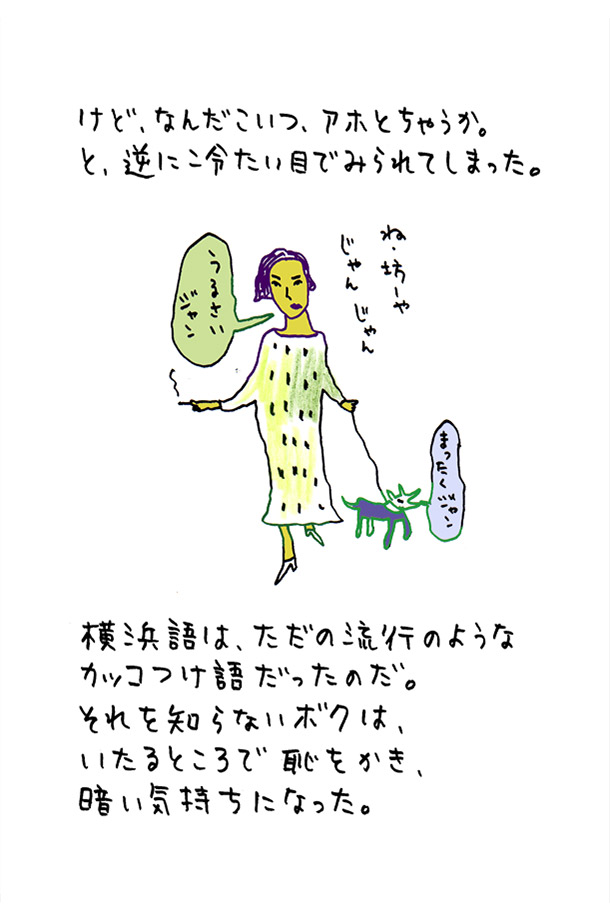 けど、なんだこいつ、アホとちゃうか。
と、逆に冷たい目でみられてしまった。
ね・坊ーや
じゃんじゃん
うるさい
ジャン
まったくジャン
横浜語は、ただの流行のような
カッコつけ語だったのだ。
それを知らないボクは、
いたるところで恥をかき、
暗い気持ちになった。